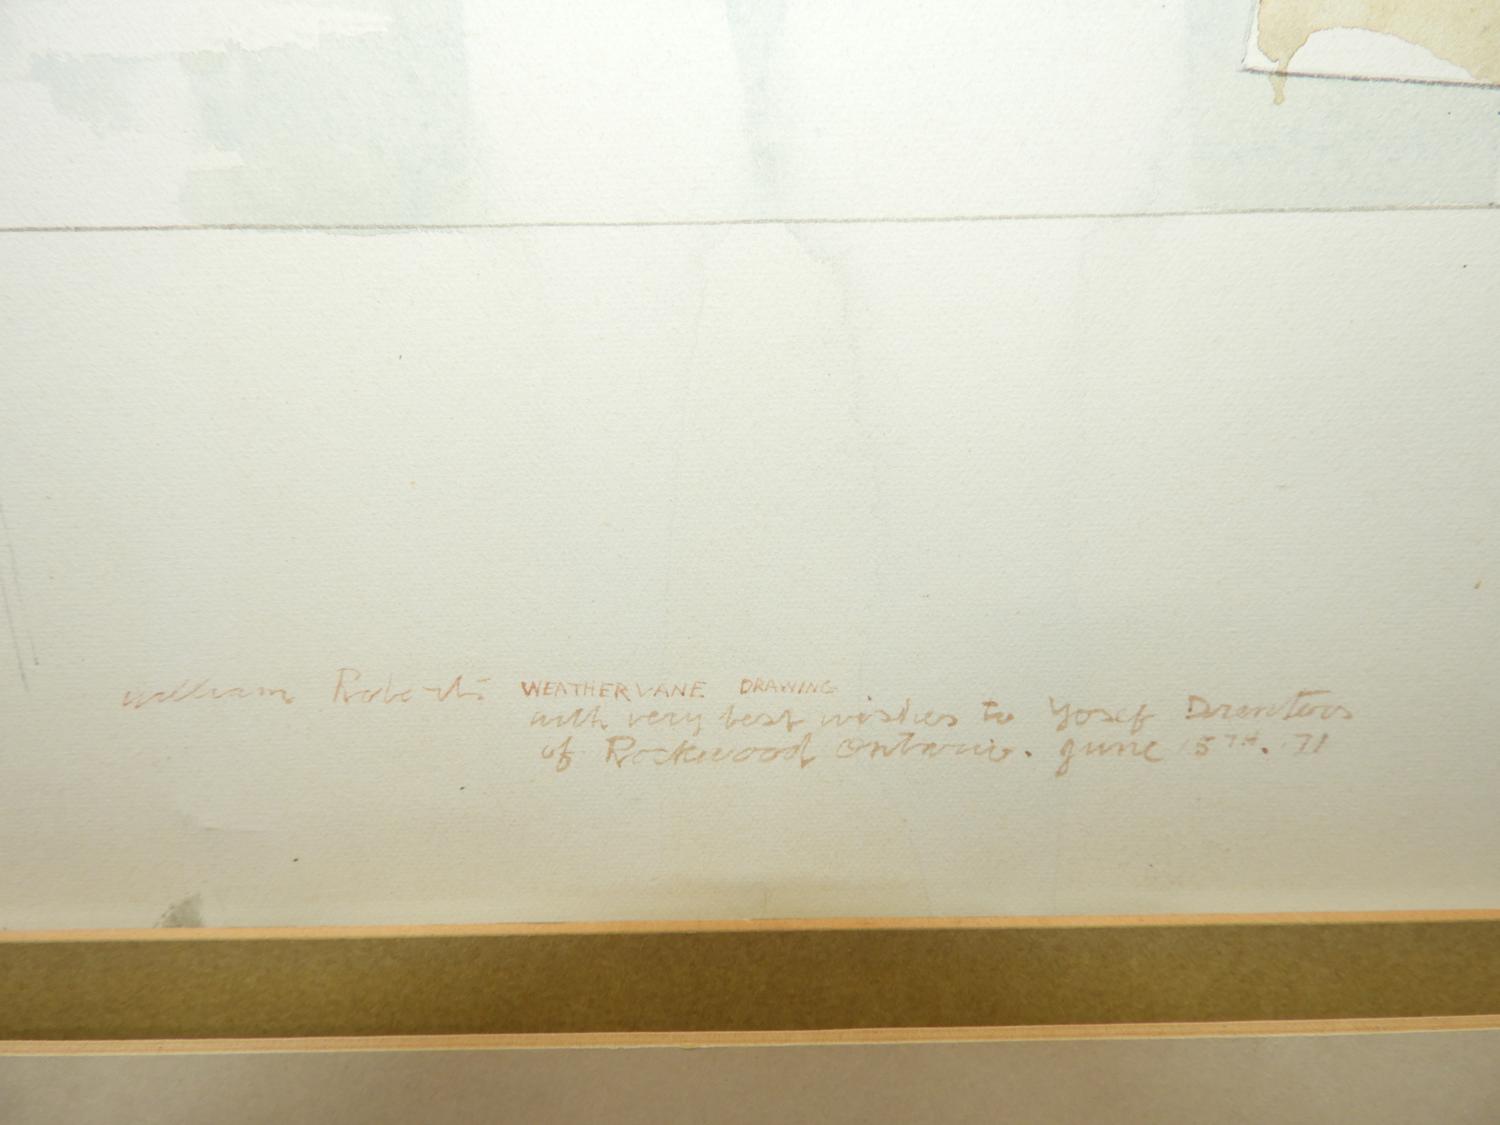 William Roberts WEATHERVANE DRAWING
with very best wishes to Yosef Drenters
of Rockwood Ontario. June 15TH. 71